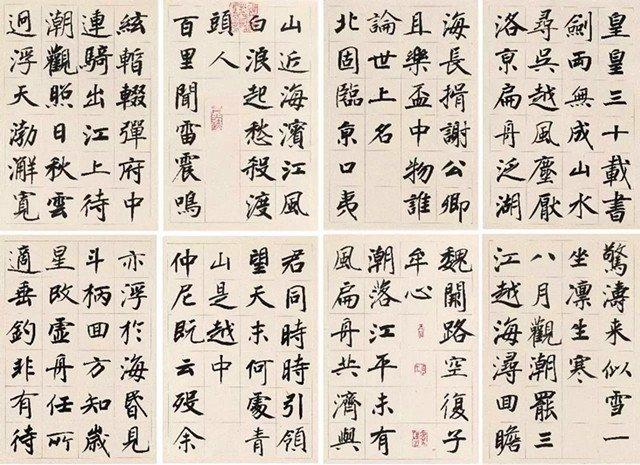 皇皇三十載書
劍兩無成山水
尋吳越風塵厭
洛京扁舟泛湖
海長揖謝公卿
且樂盃中物誰
論世上名
北固臨京口夷
山近海濱江風
白浪起愁殺渡
頭人
百里聞雷震鳴
絃暫輟彈府中
連騎出江上待
潮觀照日秋雲
迥浮天渤澥寬
驚濤來似雪一
坐凜生寒
八月觀潮罷三
江越海潯回瞻
魏闕路空復子
牟心
潮落江平未有
風扁舟共濟與
君同時時引領
望天末何處青
山是越中
仲尼既云歿余
亦浮於海昏見
斗柄回方知歲
星改虛舟任所
適垂釣非有待